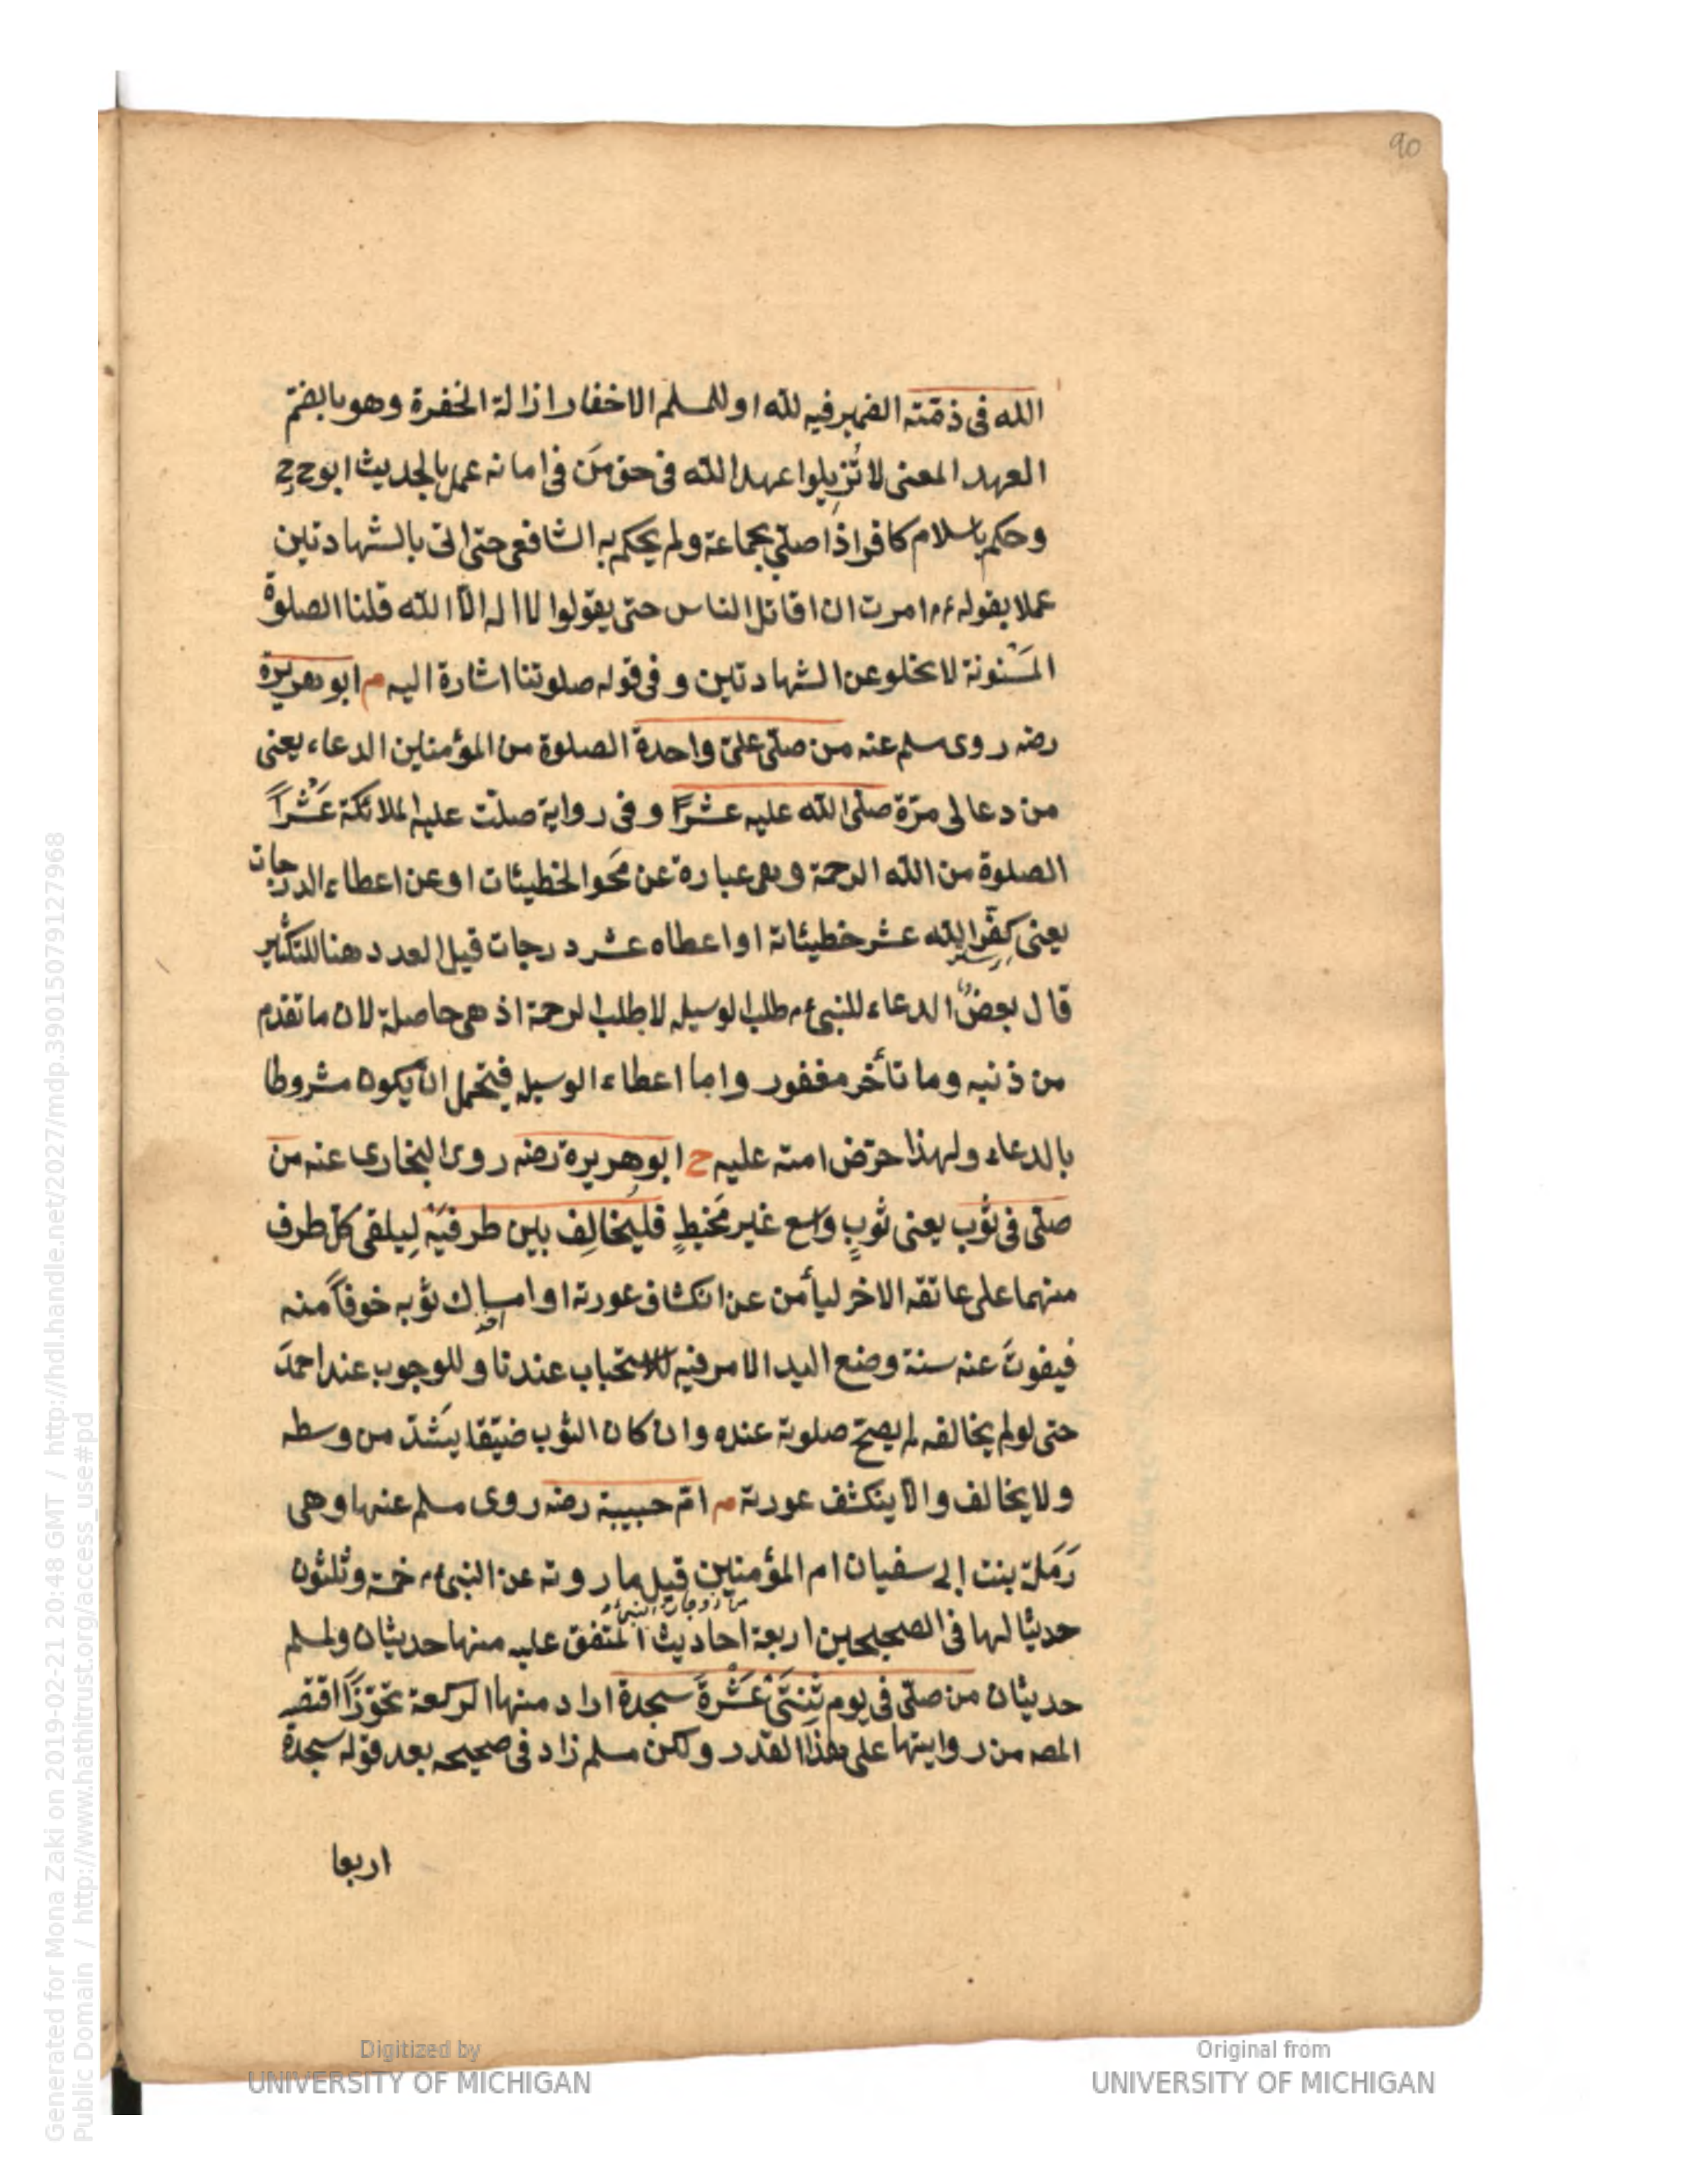 90
الله فى ذمّته الضمير فيه لله او للمسلم الاخفار ازالة الخفرة وهو بالضمّ
العهد المعنى لا تُزِيلوا عهد الله فى حق مَن فى امانه عمل بالحديث ابوح ح
وحكم باسلام كافر اذا صلّى بجماعة ولم يحكم به الشافعى حتى اتى بالشهادتين
عملا بقوله ءم امرت ان اقاتل الناس حتى يقولوا لا اله الّا الله قلنا الصلوة
المَسْنونة لا تخلو عن الشهادتين و فى قوله صلوتنا اشارة اليه م ابو هريرة
رضه روى مسلم عنه من صلّى علىّ واحدة الصلوة من المؤمنين الدعاء يعنى
من دعا لى مرّة صلّى الله عليه عشرًا و فى رواية صلّت عليه الملائكة عَشْراً
الصلوة من الله الرحمة و هى عبارة عن مَحْو الخطيئات او عن اعطاء الدرجات
يعنى كفّر الله عشر خطيئاته او اعطاه عشر درجات قيل العدد هنا للتكثير
قال بعضٌ الدعاء للنبى ءم طلب الوسيله لا طلب الرحمة اذ هى حاصلة لان ما تقدم
من ذنبه وما تأخر مغفور واما اعطاء الوسيله فيحتمل ان يكون مشروطا
بالدعاء ولهذا حرّض امته عليه ح ابو هريرة رضه روى البخارى عنه من
صلّى فى ثوب يعنى ثوبٍ واسع غير مَخيطٍ فليُخالِف بين طرفَيْه لِيلقى كلّ طرف
منهما على عاتقه الاخر ليأمن عن انكشاف عورته او امساك ثوبه خوفاً منه
فيفوتَ عنه سنة وضع اليد الامر فيه للاستحباب عندنا و للوجوب عند احمدَ
حتى لو لم يخالفه لم يصحّ صلوته عنده وان كان الثوب ضيّقا يَشُدّ من وسطه
ولا يخالف والّا ينكشف عورته م امّ حبيبة رضه روى مسلم عنها وهى
رَمَلة بنت ابى سفيان ام المؤمنين قيل ما روته عن النبى ءم خمسة وثلثون
من زوجات النبى ءم
حديثا لها فى الصحيحين اربعة احاديث المتّفق عليه منها حديثان ولمسلم
حديثان من صلّى فى يوم ثِنتَىْ عَشْرةَ سجدة اراد منها الركعة تجوّزًا اقتصر
المصه من روايتها على هذا القدر ولكن مسلم زاد فى صحيحه بعد قوله سجدة
اربعا
Digitized by
UNIVERSITY OF MICHIGAN
Original from
UNIVERSITY OF MICHIGAN
Generated for Mona Zaki on 2019-02-21 20:48 GMT / http://hdl.handle.net/2027/mdp.39015079127968
Public Domain / http://www.hathitrust.org/access_use#pd